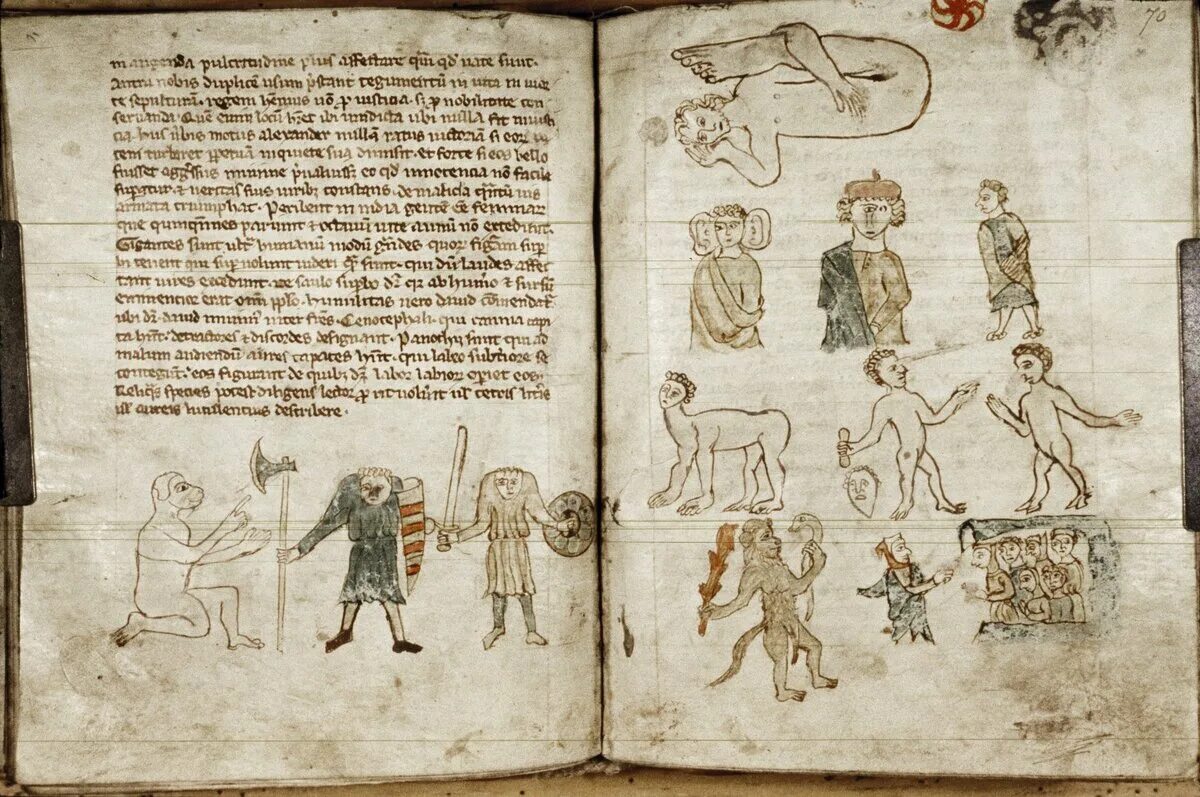 in augenda pulcritudine prius affectare qm̄ qd̄ uate sunt.
Antra nobis duplicē usum p̄stant tegumentū in uita in mor
te sepulturam. regem hēmus nō ꝑ iusticia. sꝫ ꝑ nobilitate con
seruanda. Quē enim locū hꝫet ibi uindicta ubi nulla fit iniusti
cia. hiis uerbis motus alexander nullam ratus uictoriam si eorꝫ pa
cem turbaret ꝑpetuam in quiete sua dimisit. et forte si eos bello
fuisset aggressus minime p̄ualuisset eo qd̄ innocencia nō facile
superatur. ⁊ ueritas suis uiribꝫ constans. de malicia q̄mtūuis
armata triumphat. Peribent in india gentē eē feminarꝫ
que quinquēnes pariunt ⁊ octauū uite annū nō excedunt.
Gigantes sunt ult̄ humanū modū grādes quorꝫ figām supꝫ
bi tenent qui super uolunt uideri qm̄ sunt. qui dū laudes affec
tant uires excedunt. de saulo suꝑbo dr̄. qꝫ ab humero ⁊ sursū
eminencior erat omī ppl̄o. humilitas uero dauid cōmendatꝛ
ubi dr̄. dauid minimꝰ inter fr̄es. Cenocephali. qui canina capi
ta hn̄t. detractores ⁊ discordes designant. Panothii sunt qui ad
malum audiendū aures capaces hn̄t. qui laleo subtiliore se
contegunt. eos figurant de quibꝫ dr̄. labor labiorꝫ operiet eos.
Reliq̄s species potest diligens lector ꝑut uoluerit ul̄ tetris litīs
ul̄ aureis lutulentius describere.
70